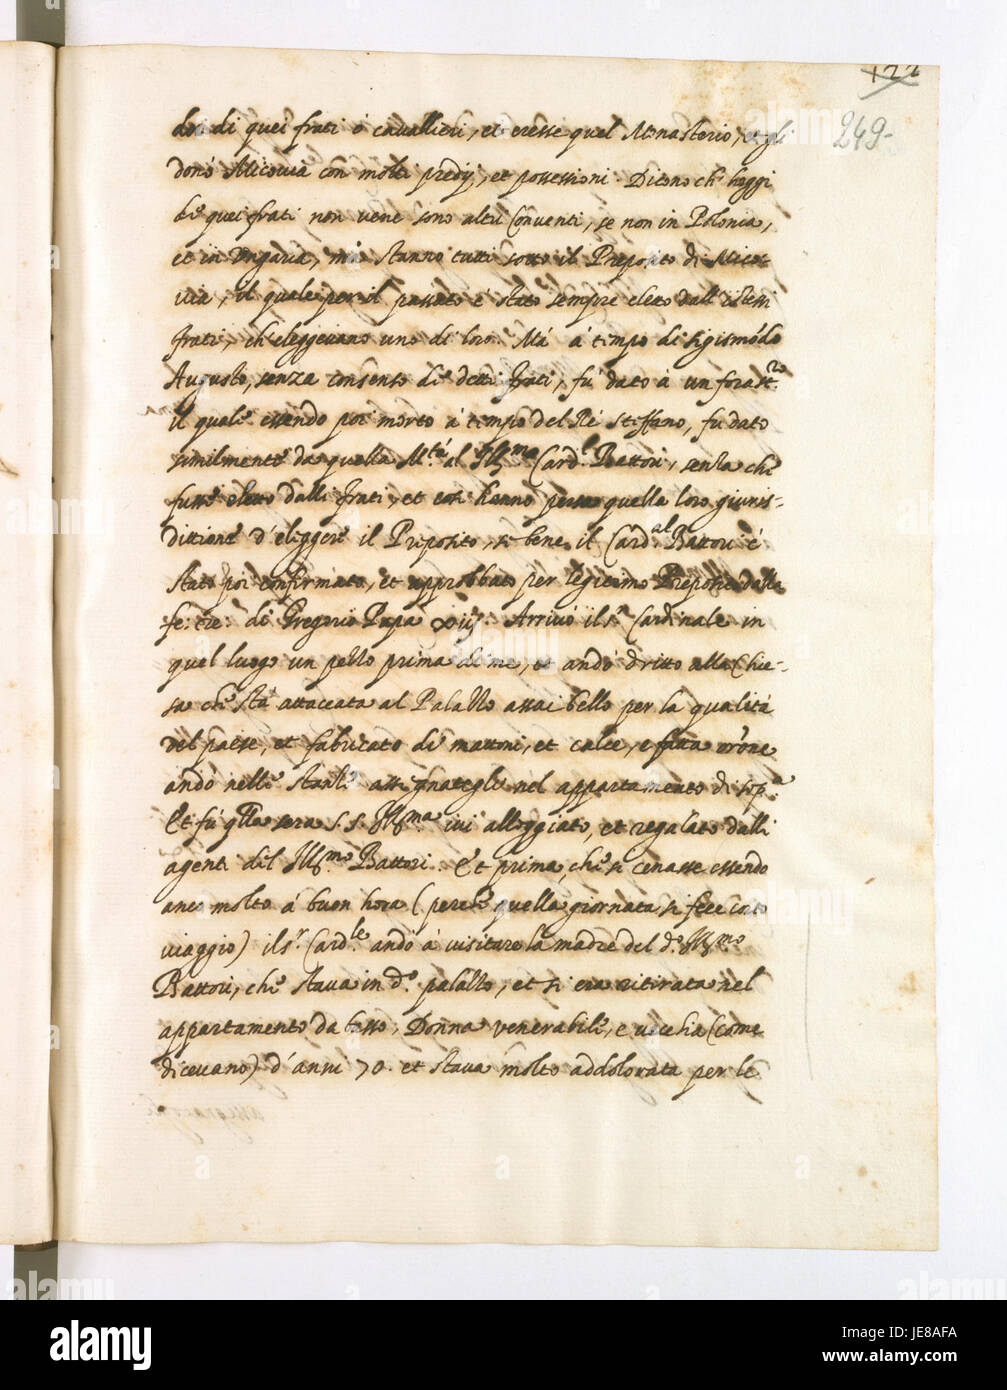 122
249
doi di quei frati ò cavallieri, et eresse quel Monasterio, et gli
donò Micovia con molti predij, et possessioni. Dicono ch' hoggi
di quei frati non vene sono altri Conventi, se non in Polonia,
et in Ungaria, mà stanno tutti sotto il Preposito di Mico-
via, il quale per il passato è stato sempre eletto dall' istessi
frati, ch' eleggevano uno di loro. Mà à tempo di Sigismódo
Augusto, senza consenso di detti frati, fù dato à un forast.ro
il quale essendo poi morto à tempo del Rè Steffano, fu dato
similmente da quella M.tà al Ill.mo Card.l Battori, senza che
fusse eletto dalli frati, et così hanno persa quella loro giuris-
dittione d'eleggere il Preposito, se bene il Card.al Battori è
stato poi confirmato, et approbbato per legitimo Preposito dalla
fe: re: di Gregorio Papa xiij. Arrivò il s.r Cardinale in
quel luogo un pezzo prima di me, et andò dritto alla Chie-
sa che stà attaccata al Palazzo assai bello per la qualità
del paese, et fabricato di mattoni, et calce, e fatta oróne
andò nelle stanze assignategli nel appartamento di sop.a
Et fù q̃lla sera S. S. Ill.ma ivi alloggiato, et regalato dalli
agenti del Ill.mo Battori. Et prima, che si cenasse essendo
anco molto à buon hora (perche quella giornata si fece corto
viaggio) il s.r Card.le andò à visitare la madre del d.o Ill.mo
Battori, che stava in d.o palazzo, et si era ritirata nel
appartamento da basso, Donna venerabile, e vecchia (come
dicevano) d'anni 70. et stava molto addolorata per le
alamy
Image ID: JE8AFA
www.alamy.com